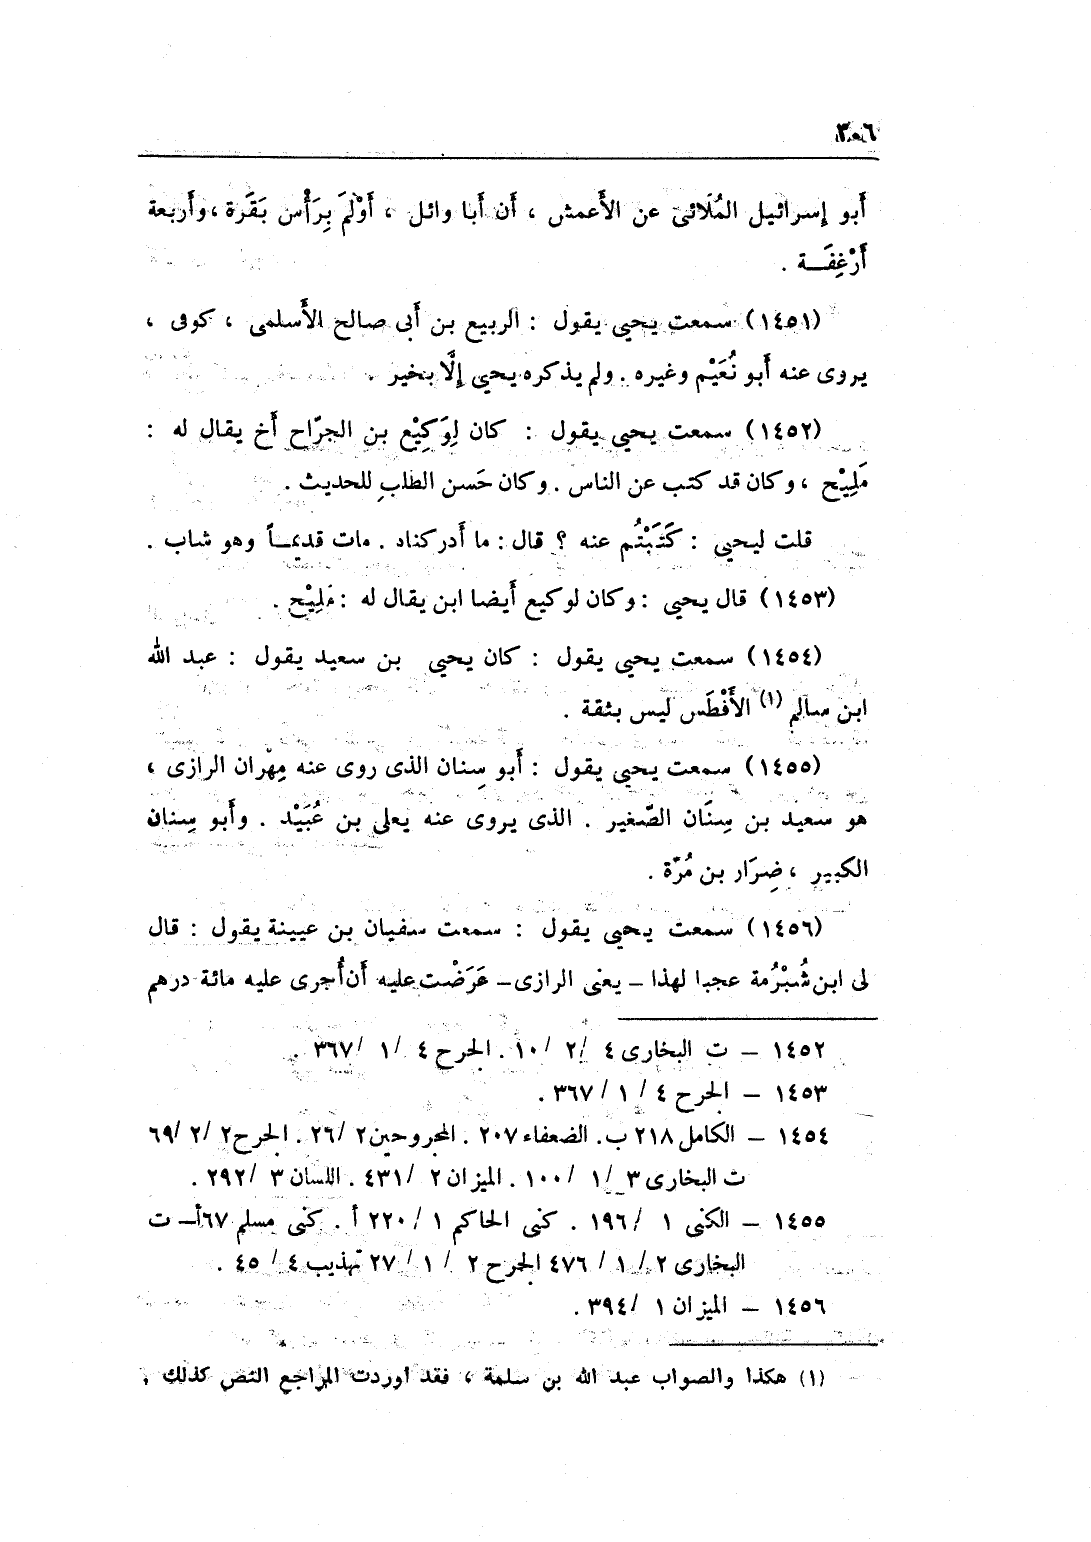 ٣٠٦
أبو إسرائيل المُلَائى عن الأَعمش ، أن أبا وائل ، أَوْلَمَ بِرَأْس بَقَرة ، وأَربعة
أَرْغِفَـــة .
(١٤٥١) سمعت يحيى يقول : الربيع بن أَبى صالح الأَسلمى ، كوفى ،
يروى عنه أَبو نُعَيْم وغيره . ولم يذكره يحيى إلَّا بخير .
(١٤٥٢) سمعت يحيى يقول : كان لِوَكِيْع بن الجرّاح أَخ يقال له :
مَلِيْح ، وكان قد كتب عن الناس . وكان حَسن الطلب للحديث .
قلت ليحيى : كَتَبْتُم عنه ؟ قال : ما أَدركناه . مات قديمــاً وهو شاب .
(١٤٥٣) قال يحيى : وكان لوكيع أَيضا ابن يقال له : مَلِيْح .
(١٤٥٤) سمعت يحيى يقول : كان يحيى بن سعيد يقول : عبد الله
ابن سالم (١) الأَفْطَس ليس بثقة .
(١٤٥٥) سمعت يحيى يقول : أَبو سِنان الذى روى عنه مِهْران الرازى ،
هو سعيد بن سِنَان الصّغير . الذى يروى عنه يعلى بن عُبَيْد . وأَبو سِنان
الكبير ، ضِرَار بن مُرّة .
(١٤٥٦) سمعت يحيى يقول : سمعت سفيان بن عيينة يقول : قال
لى ابن شُبْرُمة عجبا لهذا – يعنى الرازى – عَرَضْت عليه أَن أُجرى عليه مائة درهم
١٤٥٢ – ت البخارى ٤ / ٢ / ١٠ . الجرح ٤ / ١ / ٣٦٧ .
١٤٥٣ – الجرح ٤ / ١ / ٣٦٧ .
١٤٥٤ – الكامل ٢١٨ ب . الضعفاء ٢٠٧ . المجروحين ٢ / ٢٦ . الجرح ٢ / ٢ / ٦٩
ت البخارى ٣ / ١ / ١٠٠ . الميزان ٢ / ٤٣١ . اللسان ٣ / ٢٩٢ .
١٤٥٥ – الكنى ١ / ١٩٦ . كنى الحاكم ١ / ٢٢٠ أ . كنى مسلم ٦٧أ – ت
البخارى ٢ / ١ / ٤٧٦ الجرح ٢ / ١ / ٢٧ تهذيب ٤ / ٤٥ .
١٤٥٦ – الميزان ١ / ٣٩٤ .
(١) هكذا والصواب عبد الله بن سلمة ، فقد أوردت المراجع النص كذلك .